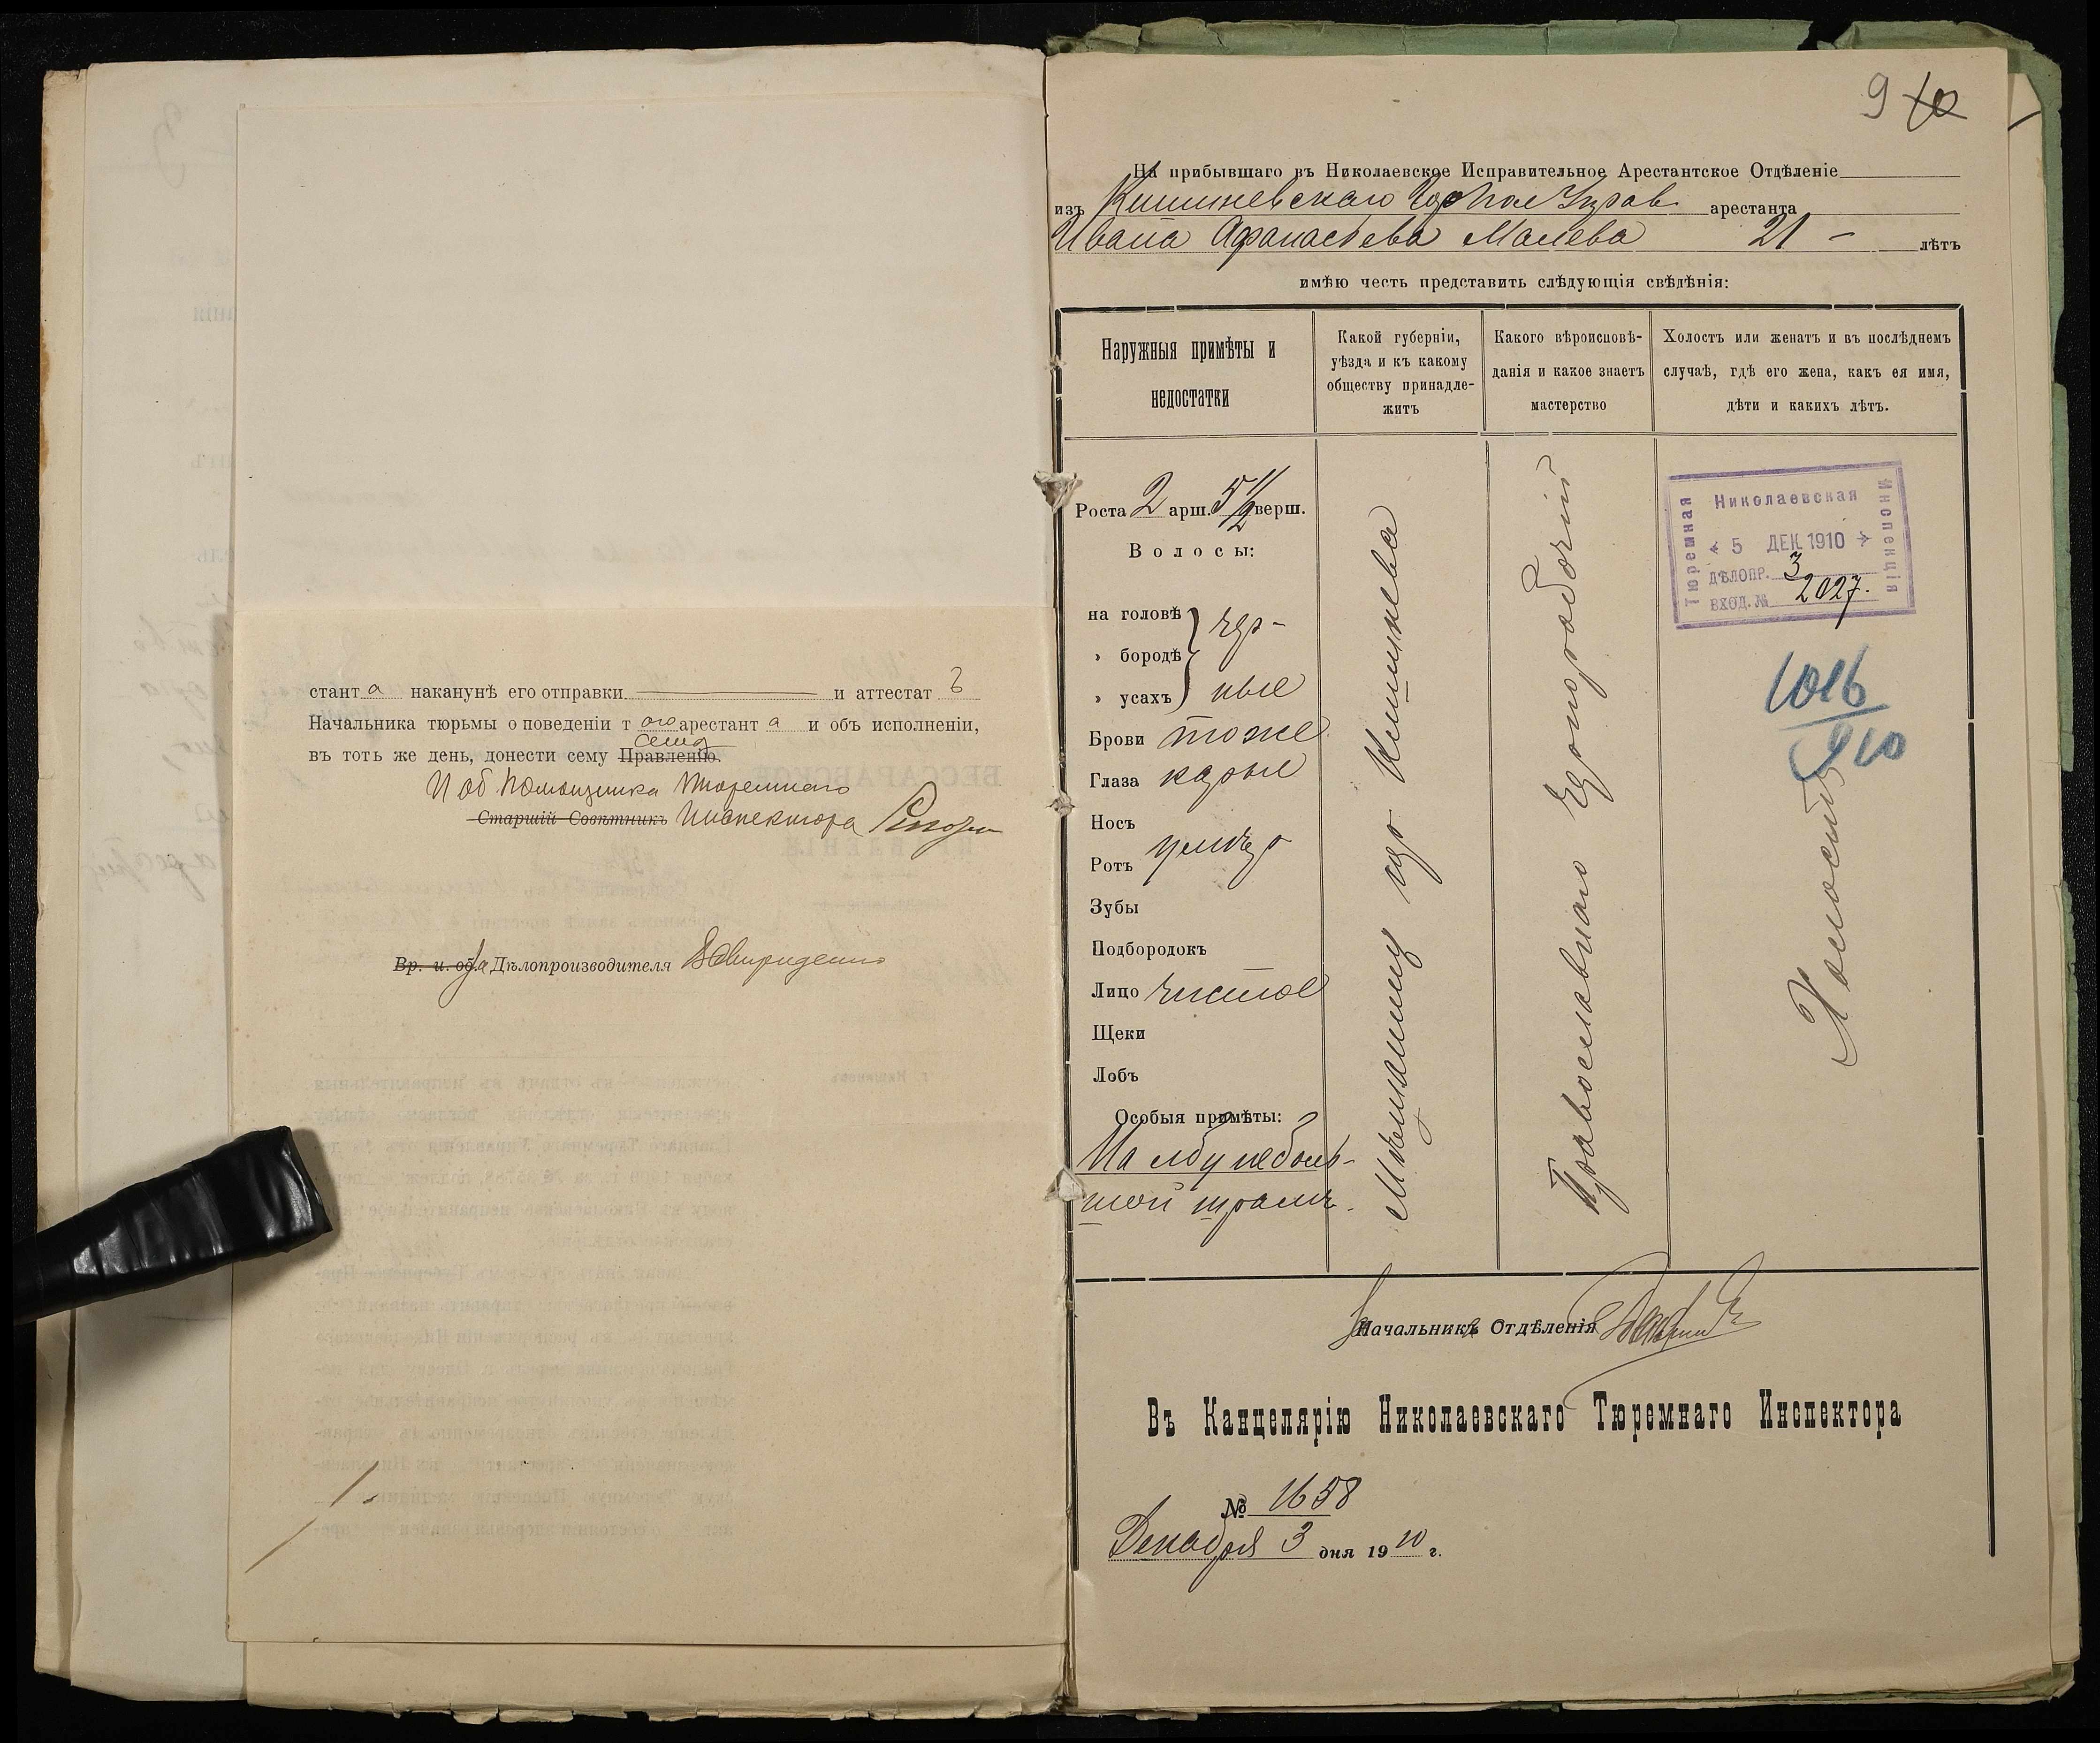 стант а наканунѣ его отправки и аттестат
Начальника тюрьмы о поведеніи т ого арестант а и об исполненіи,
въ тотъ же день, донести сему Правленію.
И об Помощника Тюремнаго
Старшій Совѣтникъ Инспектора
Вр. и. об. Дѣлопроизводителя
9 10
На прибывшаго въ Николаевское Исправительное Арестантское Отдѣленіе
изъ Кишиневскаго Гор Пол Управ. арестанта
Ивана Афанасьева Малева 21 - лѣтъ
имѣю честь представить слѣдующія свѣдѣнія:
Наружныя примѣты и
недостатки
Какой губерніи,
уѣзда и къ какому
обществу принадле-
житъ
Какого вѣроисповѣ-
данія и какое знаетъ
мастерство
Холостъ или женатъ и въ послѣднемъ
случаѣ, гдѣ его жена, какъ ея имя,
дѣти и какихъ лѣтъ.
Роста 2 арш. 5 1/2 верш.
Волосы:
на головѣ чер-
» бородѣ
» усахъ ные
Брови тоже
Глаза карые
Носъ
Ротъ умѣр
Зубы
Подбородокъ
Лицо чистое
Щеки
Лобъ
Особыя примѣты:
На лбу неболь-
шой шрамъ.
Мѣщанину гор Кишинева
Православнаго Чернорабочій
Николаевская
Тюремная
Инспекція
5 ДЕК. 1910
ДѢЛОПР. 3
ВХОД. № 2027.
1016
910
Холостъ
Начальника Отдѣленія
Въ Канцелярію Николаевскаго Тюремнаго Инспектора
№ 1658
Декабря 3 дня 1910 г.